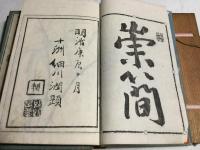 崇簡
明治庚辰月
十洲細川潤題